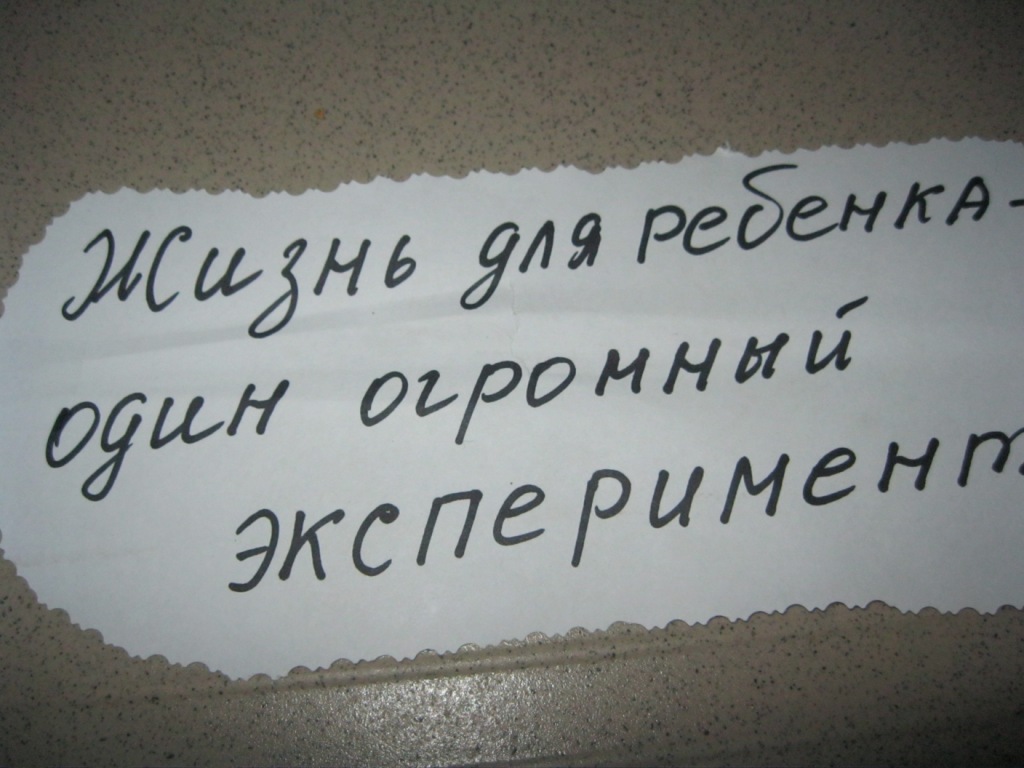 Жизнь для ребенка-
один огромный
эксперимент